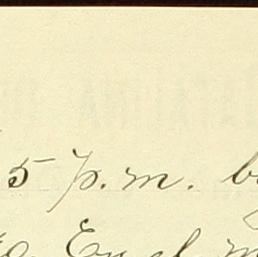 5 p.m. b
En el m